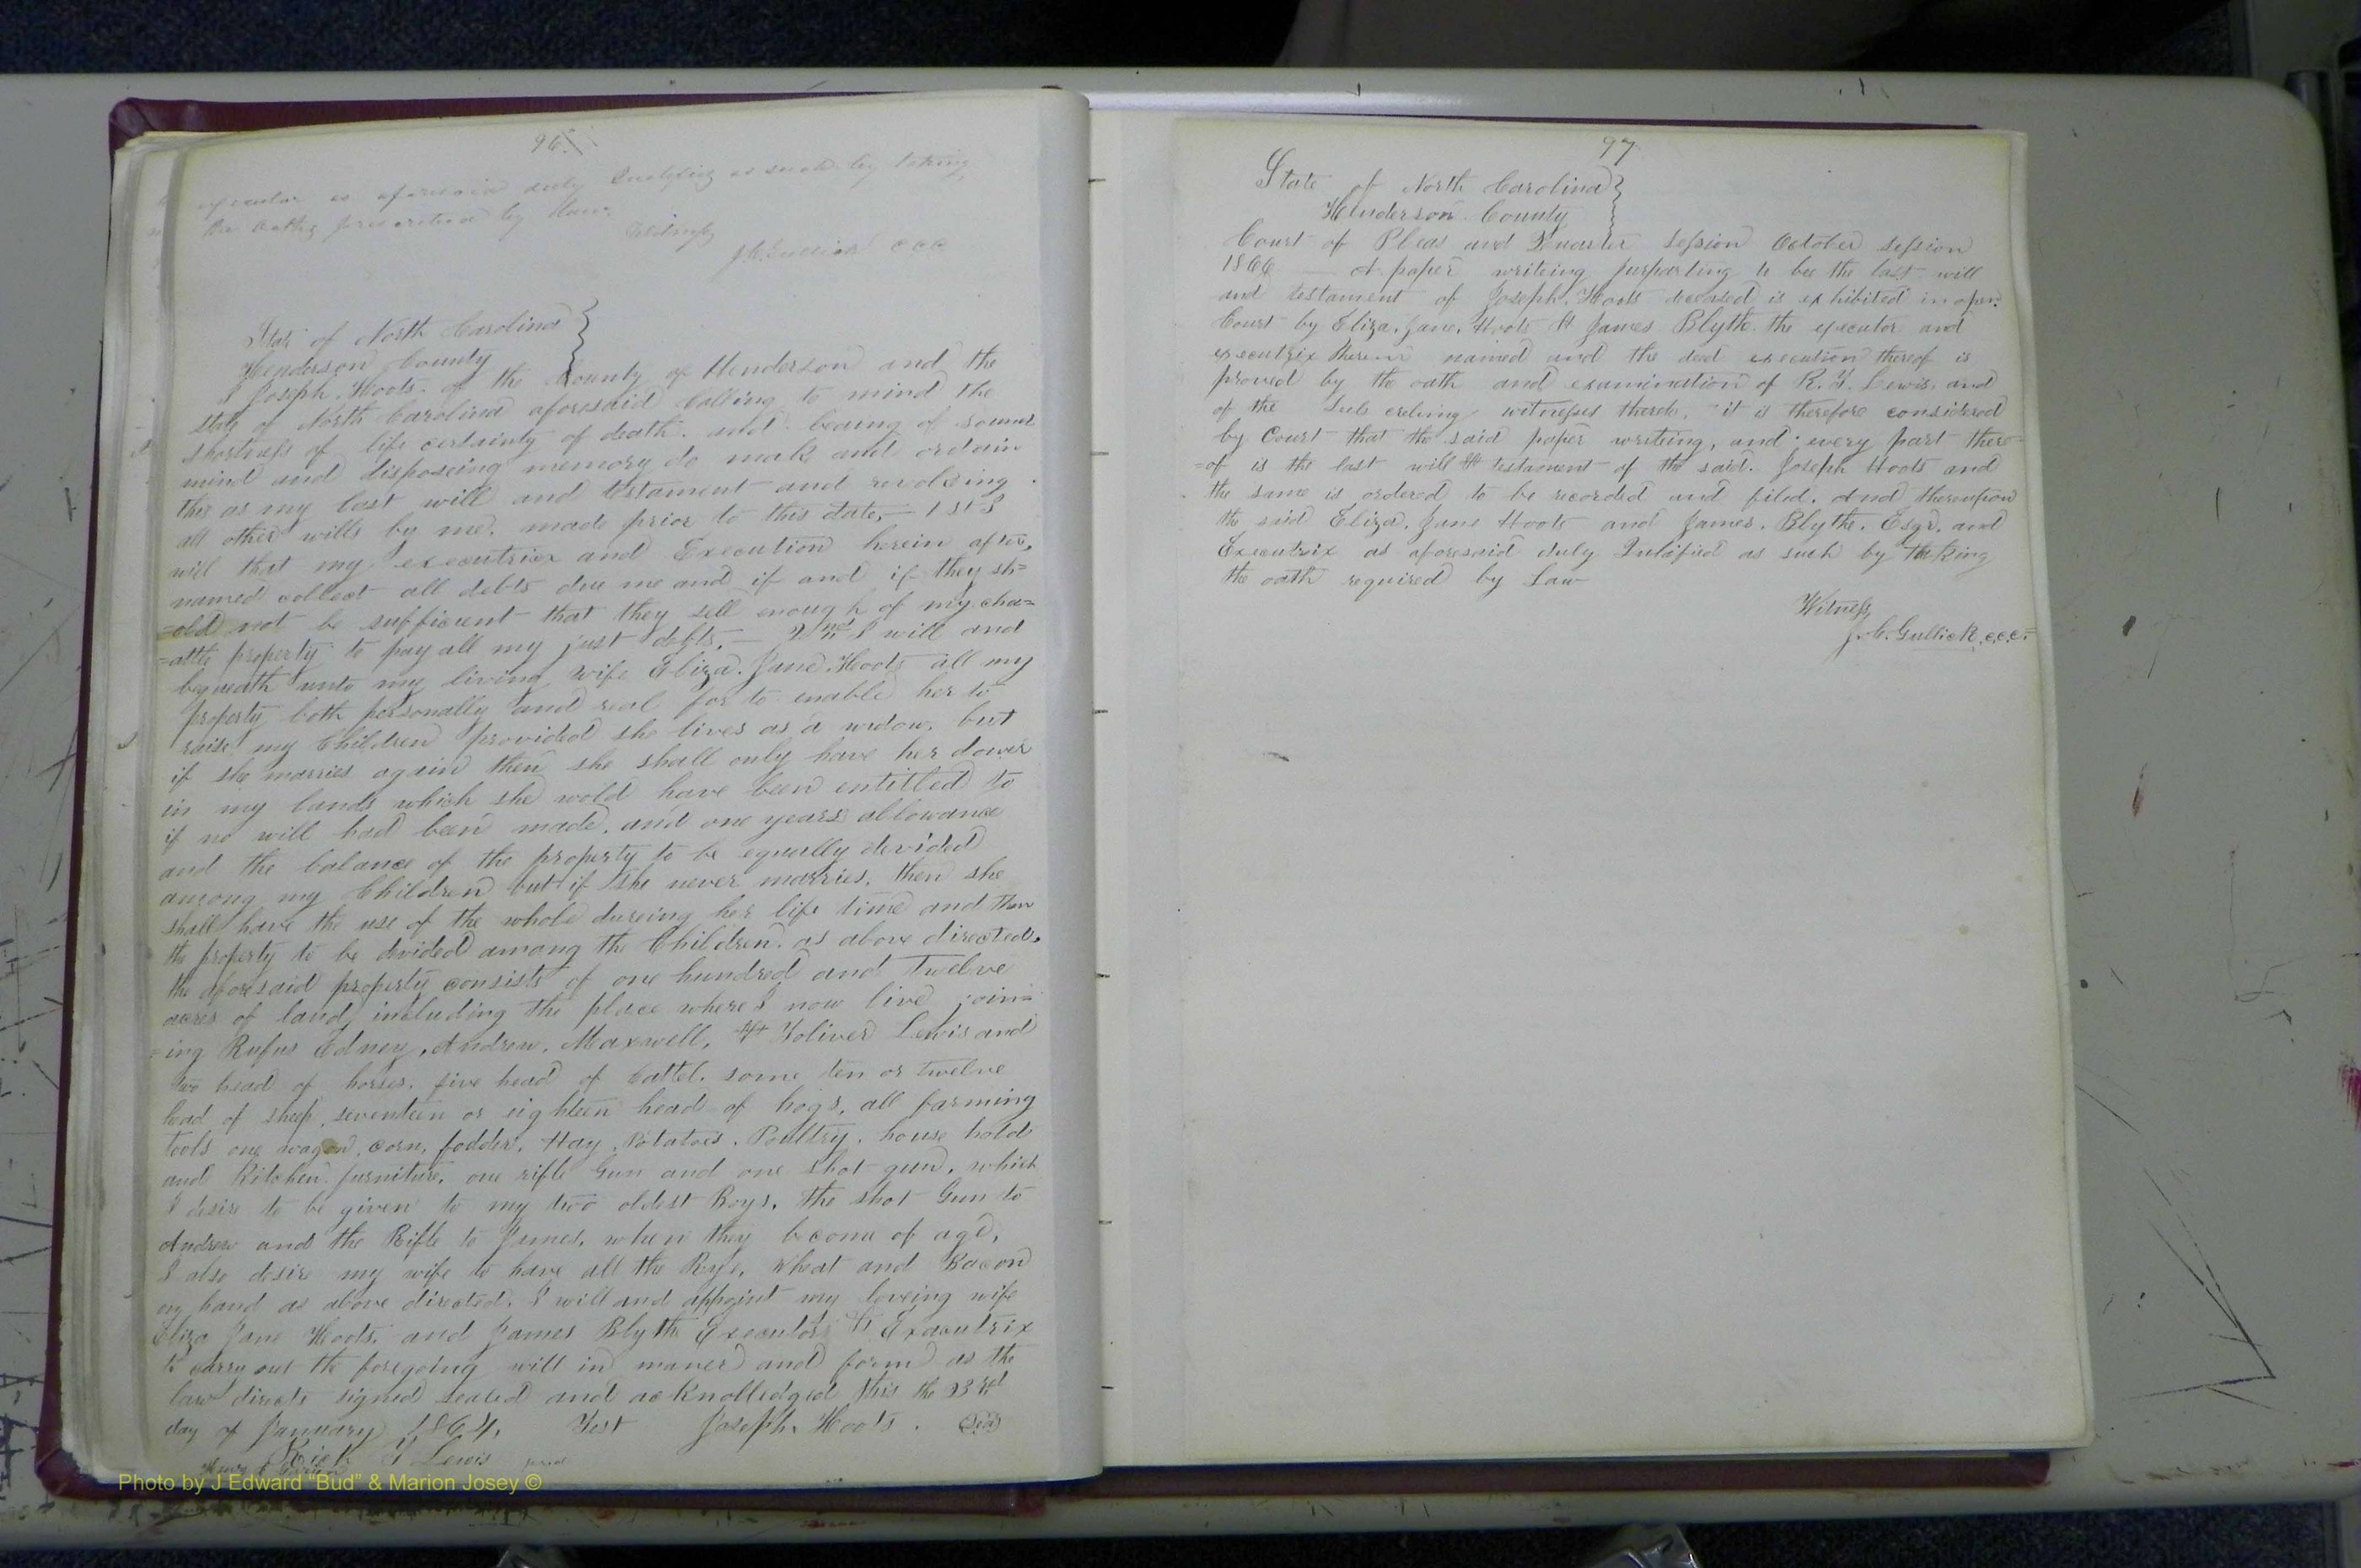 96
executor as aforesaid duly Qualifies as such by taking
the oaths prescribed by Law.
Witness
J. C. Gullick CCC
State of North Carolina
Henderson County
I Joseph. Hoots. of the County of Henderson and the
state of North Carolina aforesaid calling to mind the
shortness of life certainty of death. and beaing of sound
mind and disposeing memory do make and ordain
this as my last will and testament and revokeing
all other wills by me. made prior to this date,— 1st I
will that my executriex and Execution herein after,
named collect all debts due me and if and if they sh=
=old not be sufficient that they sell enough of my cha=
=attle property to pay all my just debts,— 2nd I will and
bequeath unto my living wife Eliza. Jane. Hoots all my
property both personally and real for to enable her to
raise my Children provided she lives as a widow. but
if she marries again then she shall only have her dower
in my lands which she wold have been entitled to
if no will had been made. and one years allowance
and the balance of the property to be equally devided
among my Children but if she never marries. then she
shall have the use of the whole dureing her life time and then
the property to be devided among the Children. as above directed.
the aforesaid property consists of one hundred and Twelve
acres of land, including the place where I now live join=
=ing Rufus Edney, Andrew. Maxwell, & Toliver Lewis and
two head of horses. five head of Cattel. some ten or twelve
head of sheep, seventeen or eighteen head of hogs, all farming
tools one wagon, corn, fodder, Hay, Potatoes. Poultry. house hold
and Kitchen. furniture, one rifle Gun and one shot gun, which
I desire to be given to my two oldest Boys, the shot Gun to
Andrew and the Rifle to James, when they become of age,
I also desire my wife to have all the Rye, wheat and Bacon
on hand as above directed. I will and appoint my loveing wife
Eliza Jane Hoots. and James Blythe Executors & Exacutrix
to carry out the foregoing will in maner and form as the
law directs signed sealed and acknolledged this the 23rd
day of January 1864, Test Joseph. Hoots. Seal
Rich T Lewis
Photo by J Edward "Bud" & Marion Josey ©
97
State of North Carolina
Henderson County
Court of Pleas and Quarter Session October session
1866 — A paper writeing purparting to bee the last will
and testament of Joseph. Hoots deceased is exhibited in open.
Court by Eliza, Jane, Hoots & James Blythe the executor and
executrix therein named and the dead execution thereof is
proved by the oath and examination of R. T. Lewis, and
of the subscribing witnesses thereto, it is therefore considered
by Court that the said paper writeing, and every part there=
=of is the last will & testament of the said. Joseph Hoots and
the same is ordered to be recorded and filed. And thereupon
the said Eliza. Jane Hoots and James. Blythe. Esqr. and
Executrix as aforesaid duly Qulified as such by thaking
the oath required by Law
Witness,
J. C. Gullick. c.c.c.=